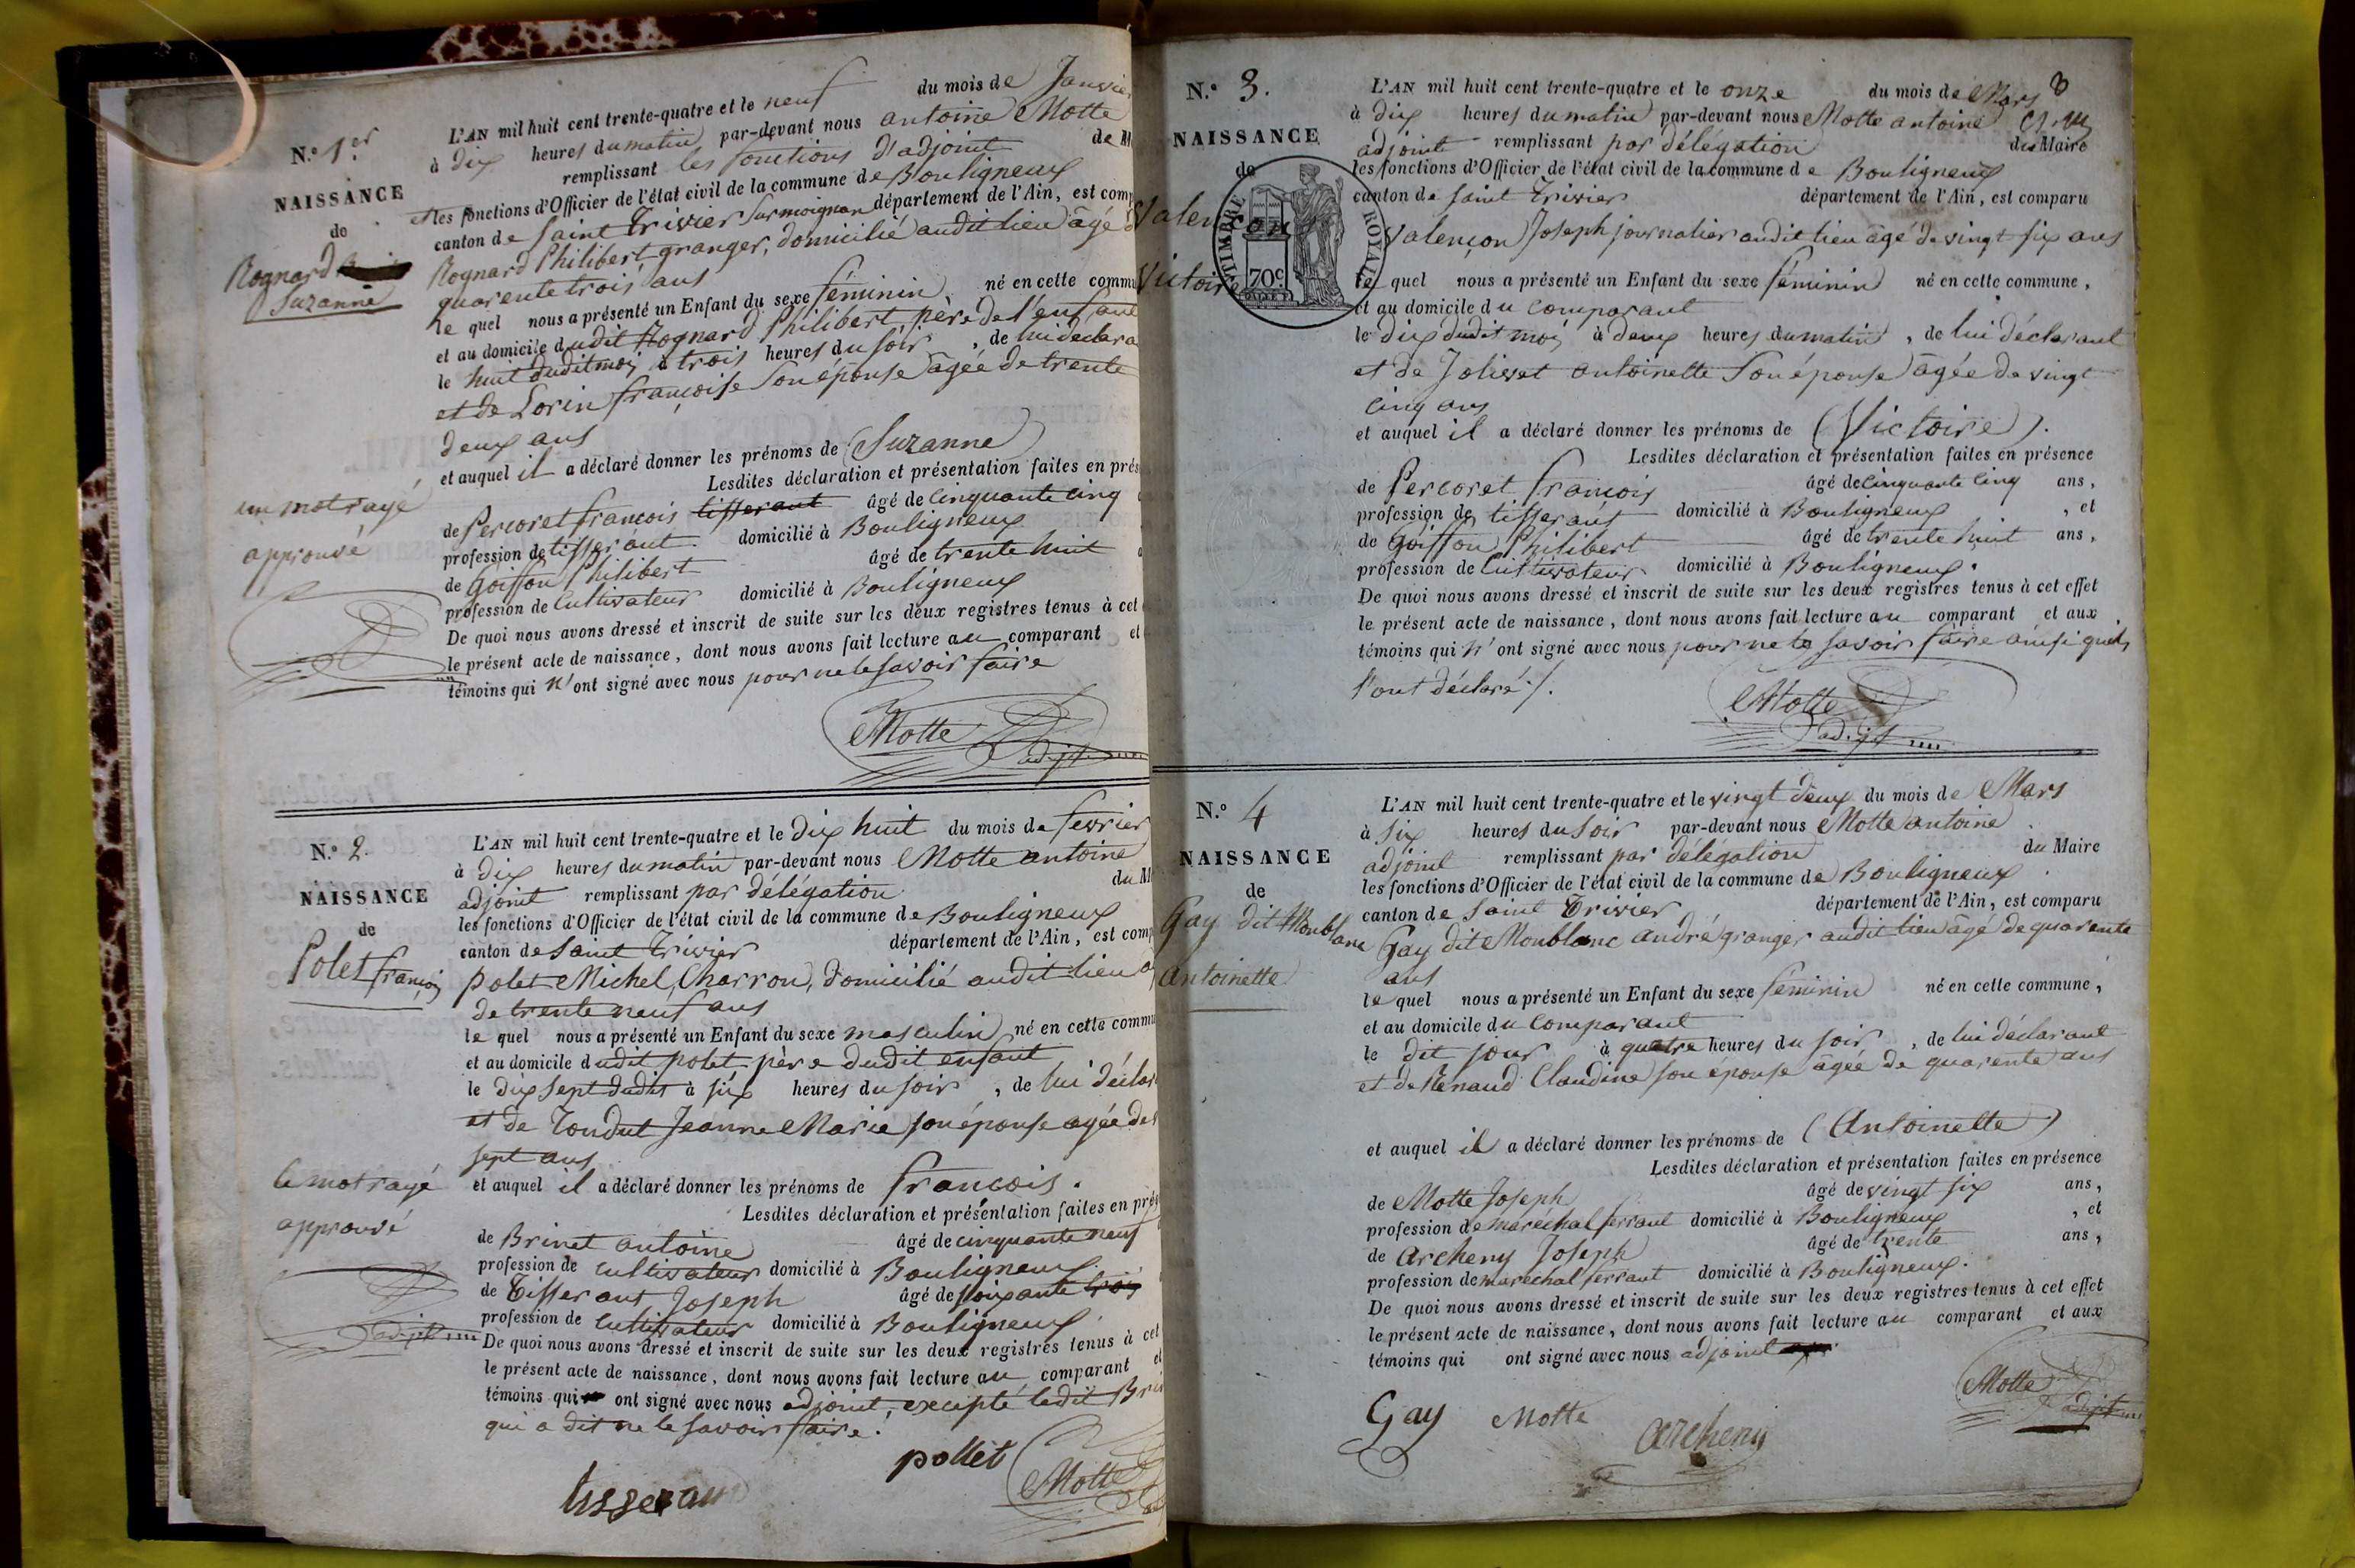 N.o 1.er
NAISSANCE
de
Rognard
Suzanne
L'AN mil huit cent trente-quatre et le neuf du mois de Janvier
à dix heures du matin par-devant nous antoine Motte
remplissant les fonctions d'adjoint de M
et les fonctions d'Officier de l'état civil de la commune de Bouligneux
canton de Saint Trivier Surmoignan département de l'Ain, est comp
Rognard Philibert granger, domicilié audit lieu âgé d
quarente trois ans
le quel nous a présenté un Enfant du sexe féminin né en cette commu
et au domicile dudit Rognard Philibert père de l'enfant
le huit dudit moi à trois heures du soir, de lui déclara
et de Lorin françoise Son épouse âgée de trente
deux ans
et auquel il a déclaré donner les prénoms de (Suzanne)
Lesdites déclaration et présentation faites en prés
un mot rayé
approuvé
de Percoret francois tisserant âgé de cinquante cinq
profession de tisserant domicilié à Bouligneux
de Goiffon Philibert âgé de trente huit
profession de Cultivateur domicilié à Bouligneux
De quoi nous avons dressé et inscrit de suite sur les deux registres tenus à cet
le présent acte de naissance, dont nous avons fait lecture au comparant et
témoins qui n'ont signé avec nous pour ne le savoir faire
Motte
adjt
N.o 2.
NAISSANCE
de
Polet françois
L'AN mil huit cent trente-quatre et le dix huit du mois de fevrier
à dix heures du matin par-devant nous Motte antoine
adjoint remplissant par délégation du M
les fonctions d'Officier de l'état civil de la commune de Bouligneux
canton de Saint Trivier département de l'Ain, est comp
polet Michel, Charron, domicilié audit lieu a
de trente neuf ans
le quel nous a présenté un Enfant du sexe masculin né en cette commu
et au domicile dudit polet père dudit enfant
le dix sept dudit à six heures du soir, de lui déclar
et de Tondut Jeanne Marie son épouse agée de
sept ans
et auquel il a déclaré donner les prénoms de francois.
Lesdites déclaration et présentation faites en prés
le mot rayé
approuvé
adjt
de Brinet antoine âgé de cinquante neuf
profession de cultivateur domicilié à Bouligneux
de Tisserant Joseph âgé de soixante trois
profession de cultivateur domicilié à Bouligneux
De quoi nous avons dressé et inscrit de suite sur les deux registres tenus à cet
le présent acte de naissance, dont nous avons fait lecture au comparant et
témoins qui ont signé avec nous adjoint, excepté ledit Bri
qui a dit ne le savoir faire.
pollet
Motte
tisseran
N.o 3.
8
NAISSANCE
de
Valençon
Victoire
TIMBRE ROYAL
70c
L'AN mil huit cent trente-quatre et le onze du mois de Mars
à dix heures du matin par-devant nous Motte antoine
adjoint remplissant par délégation du Maire
les fonctions d'Officier de l'état civil de la commune de Bouligneux
canton de saint Trivier département de l'Ain, est comparu
Valençon Joseph journalier audit lieu âgé de vingt six ans
le quel nous a présenté un Enfant du sexe féminin né en cette commune,
et au domicile du comparant
le dix dudit moi à deux heures du matin, de lui déclarant
et de Jolivet antoinette Son épouse âgée de vingt
cinq ans
et auquel il a déclaré donner les prénoms de (Victoire).
Lesdites déclaration et présentation faites en présence
de Percoret francois âgé de cinquante cinq ans,
profession de tisserant domicilié à Bouligneux, et
de Goiffon Philibert âgé de trente huit ans,
profession de Cultivateur domicilié à Bouligneux.
De quoi nous avons dressé et inscrit de suite sur les deux registres tenus à cet effet
le présent acte de naissance, dont nous avons fait lecture au comparant et aux
témoins qui n'ont signé avec nous pour ne le savoir faire ainsi quils
l'ont déclaré./.
Motte
adjt
N.o 4
NAISSANCE
de
Gay dit Monblanc
antoinette
L'AN mil huit cent trente-quatre et le vingt deux du mois de Mars
à six heures du soir par-devant nous Motte antoine
adjoint remplissant par délégation du Maire
les fonctions d'Officier de l'état civil de la commune de Bouligneux
canton de Saint Trivier département de l'Ain, est comparu
Gay dit Monblanc andré granger audit lieu âgé de quarente
ans
le quel nous a présenté un Enfant du sexe féminin né en cette commune,
et au domicile du comparant
le dit jour à quatre heures du soir, de lui déclarant
et de Renaud Claudine son épouse âgée de quarente ans
et auquel il a déclaré donner les prénoms de (Antoinette)
Lesdites déclaration et présentation faites en présence
de Motte Joseph âgé de vingt six ans,
profession de maréchal ferrant domicilié à Bouligneux, et
de Archeny Joseph âgé de trente ans,
profession de maréchal ferrant domicilié à Bouligneux.
De quoi nous avons dressé et inscrit de suite sur les deux registres tenus à cet effet
le présent acte de naissance, dont nous avons fait lecture au comparant et aux
témoins qui ont signé avec nous adjoint
Gay Motte archeny
Motte
adjt